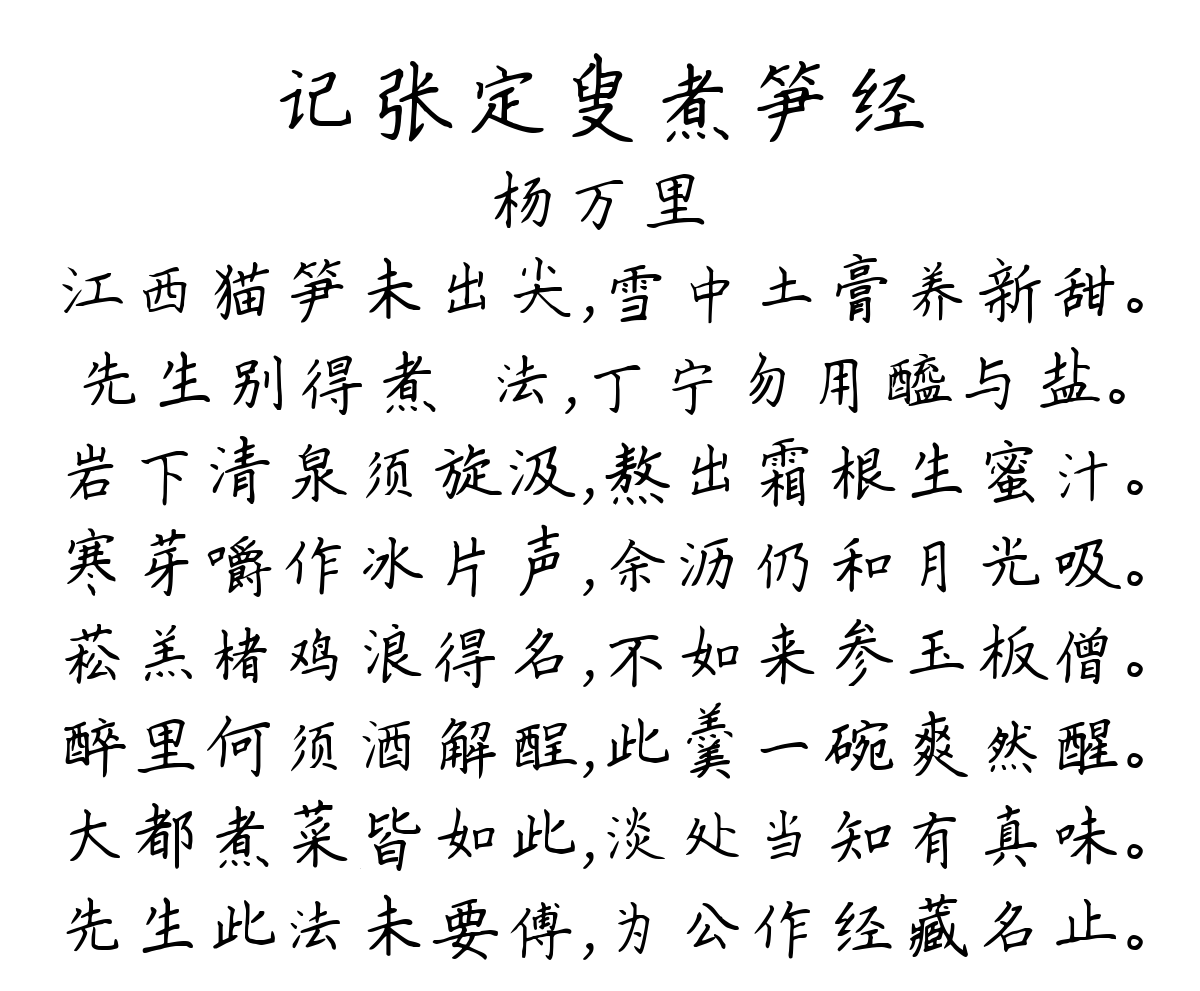 记张定叟煮笋经
杨万里
江西猫笋未出尖,雪中土膏养新甜。
先生别得煮 法,丁宁勿用醯与盐。
岩下清泉须旋汲,熬出霜根生蜜汁。
寒芽嚼作冰片声,余沥仍和月光吸。
菘羔楮鸡浪得名,不如来参玉板僧。
醉里何须酒解酲,此羹一碗爽然醒。
大都煮菜皆如此,淡处当知有真味。
先生此法未要傅,为公作经藏名止。